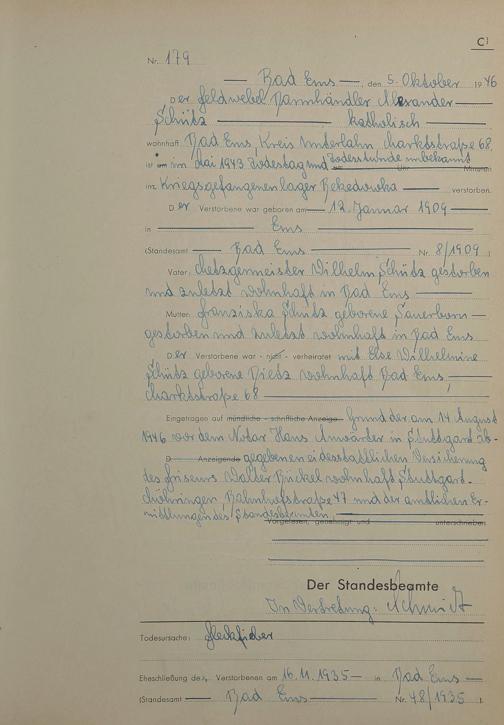 C1
Nr. 179
Bad Ems, den 5. Oktober 1946
Der Feldwebel, Alexander
Schütz katholisch
wohnhaft Bad Ems, Kreis Unterlahn, Marktstraße 68,
ist im Mai 1943 Todestag und Todesstunde unbekannt
in Kriegsgefangenenlager Bekedowka verstorben.
Der Verstorbene war geboren am 12. Januar 1909
in Ems
(Standesamt Bad Ems Nr. 8/1909)
Vater: Metzgermeister Wilhelm Schütz gestorben
und zuletzt wohnhaft in Bad Ems
Mutter: Franziska Schütz geborene Sauerborn
gestorben und zuletzt wohnhaft in Bad Ems
Der Verstorbene war - nicht - verheiratet mit Else Wilhelmine
Schütz geborene Dietz wohnhaft Bad Ems,
Marktstraße 68
Eingetragen auf mündliche - schriftliche Anzeige Grund der am 14. August
1946 vor dem Notar Hans Anwärter in Stuttgart ab-
D Anzeigende gegebenen eidesstattlichen Versicherung
des Friseurs Walter Bückel wohnhaft Stuttgart-
Möhringen, Bahnhofstraße 47 und der amtlichen Er-
mittlungen des Standesbeamten.
Vorgelesen, genehmigt und unterschrieben
Der Standesbeamte
In Vertretung: Schmidt
Todesursache: Fleckfieber
Eheschließung des Verstorbenen am 16.11.1935 in Bad Ems
(Standesamt Bad Ems Nr. 48/1935)